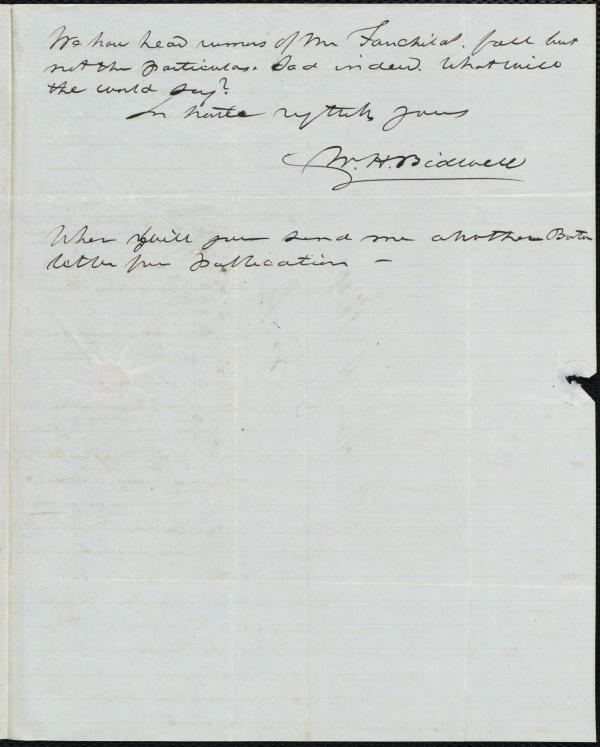 We have heard rumors of Mr Fairchild. fall but
not the particulars. Sad indeed. What will
the world say?
In haste yours
W. H. Bidwell
When will you send me another Boston
letter for publication –